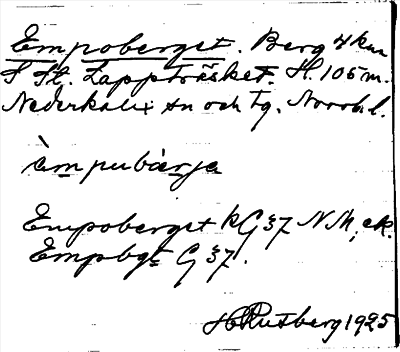 Empoberget. Berg 4 km
S St. Lappträsket. H. 105 m.
Nederkalix sn och tg. Norrb. l.
àm pubàrja
Empoberget kG 37 NM, ek.
Empbgt G 37.
H Rutberg 1925